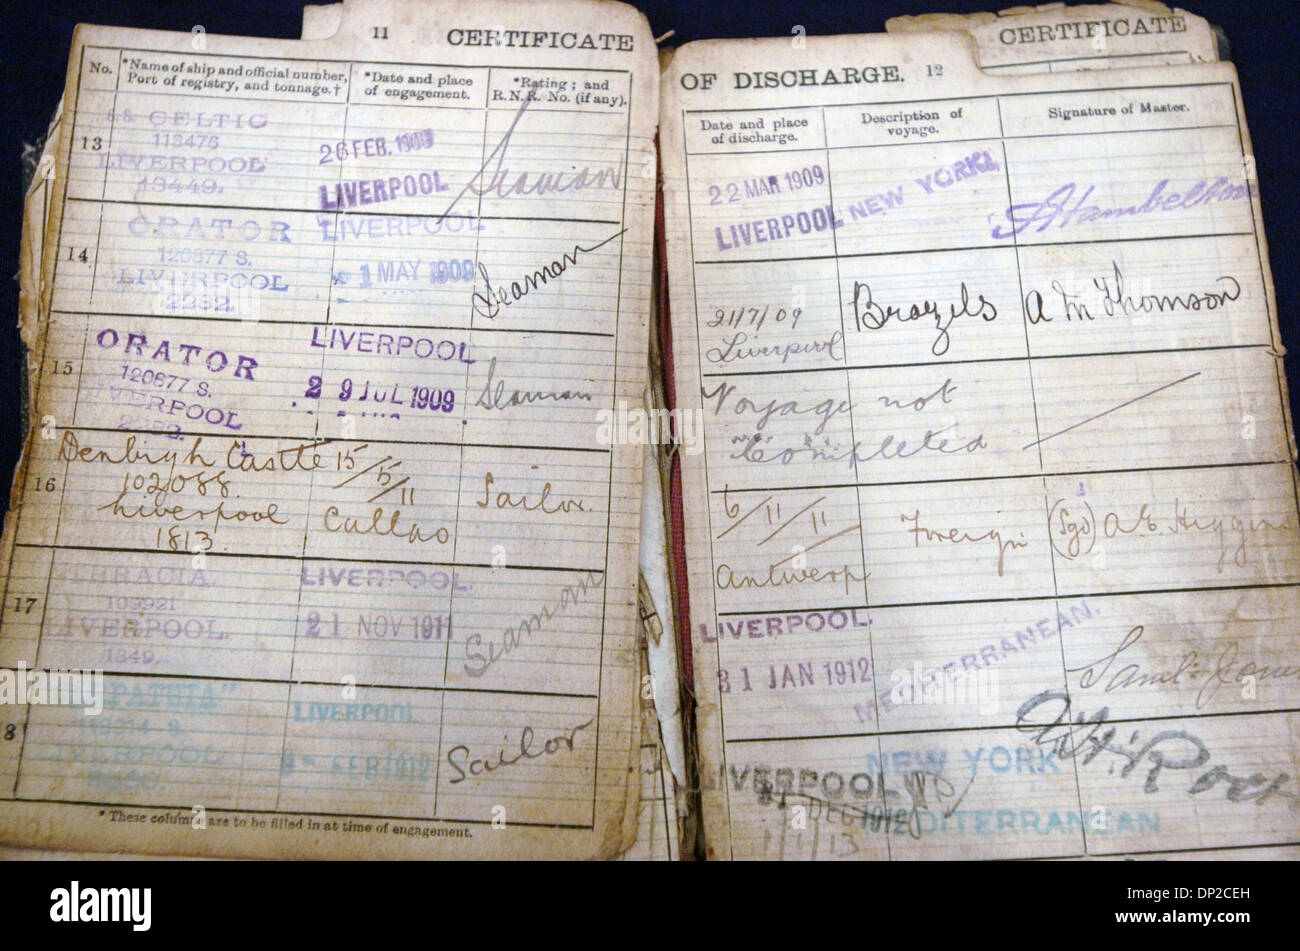 11 CERTIFICATE
No.
*Name of ship and official number,
Port of registry, and tonnage.†
*Date and place
of engagement.
*Rating; and
R.N.R. No. (if any).
13
S.S. CELTIC
113476
LIVERPOOL
13449.
26 FEB. 1909
LIVERPOOL
Seaman
14
ORATOR
120877 S.
LIVERPOOL
2282.
LIVERPOOL
1 MAY 1909
Seaman
15
ORATOR
120877 S.
LIVERPOOL
LIVERPOOL
29 JUL 1909
Seaman
16
Denbigh Castle
102088
Liverpool
1813
15/5/11
Callao
Sailor.
17
THRACIA.
LIVERPOOL.
1849.
LIVERPOOL.
21 NOV 1911
Seaman
8
LIVERPOOL
LIVERPOOL
FEB 1912
Sailor
*These columns are to be filled in at time of engagement.
CERTIFICATE
OF DISCHARGE. 12
Date and place
of discharge.
Description of
voyage.
Signature of Master.
22 MAR 1909
LIVERPOOL
NEW YORK
21/7/09
Liverpool
Brazels
A M Thomson
Voyage not
Completed
6/11/11
Antwerp
Foreign
(Sgd) A. E. Higgin
LIVERPOOL.
31 JAN 1912
MEDITERRANEAN.
Saml. Jones
LIVERPOOL
DEC 1912
1/1/13
NEW YORK
MEDITERRANEAN
a
alamy
alamy
Image ID: DP2CEH
www.alamy.com